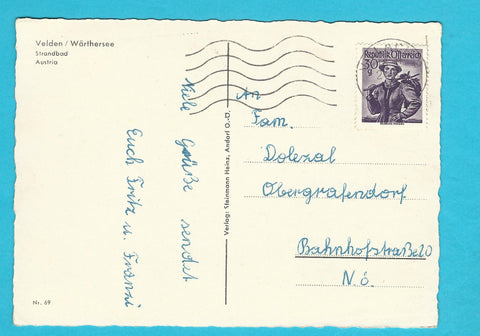 Velden / Wörthersee
Strandbad
Austria
Viele Grüße sendet
Euch Fritz u. Franzi
Nr. 69
Verlag: Steinmann Heinz, Andorf O.-Ö.
Republik Österreich
30
g
An
Fam.
Dolezal
Obergrafendorf
Bahnhofstraße 20
N.Ö.